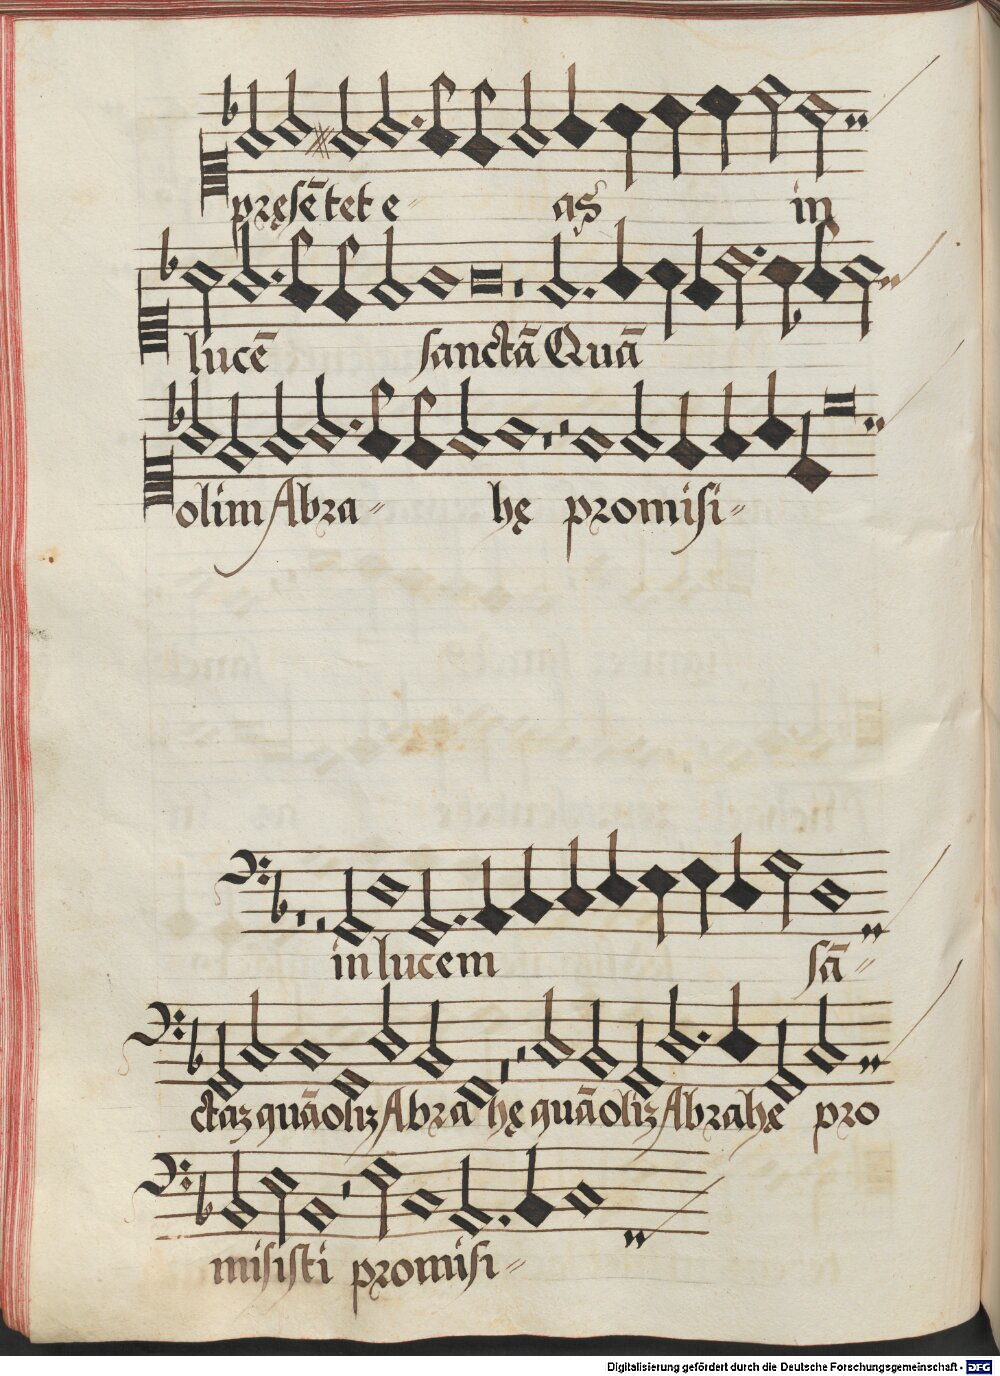 pręsētet e- as in
lucē sanctā Quā
olim Abra- hę promisi-
in lucem sā-
ctaz quā oliz Abra hę quā oliz Abrahę pro
misisti promisi-
Digitalisierung gefördert durch die Deutsche Forschungsgemeinschaft - DFG